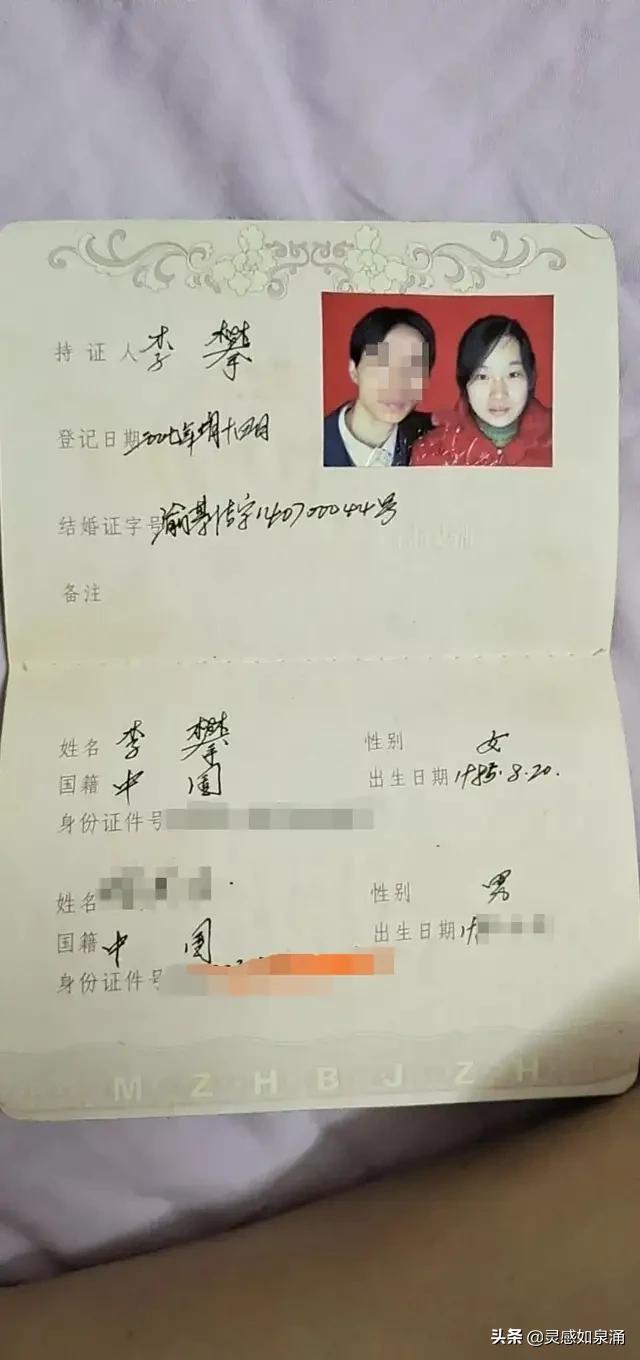 持证人 李 攀
登记日期 二00七年 月十四日
结婚证字号 渝綦结字140700044号
备注
姓名 李 攀 性别 女
国籍 中 国 出生日期 1985.8.20.
身份证件号
姓名 性别 男
国籍 中 国 出生日期 19
身份证件号
MZHBJZH
头条 @灵感如泉涌